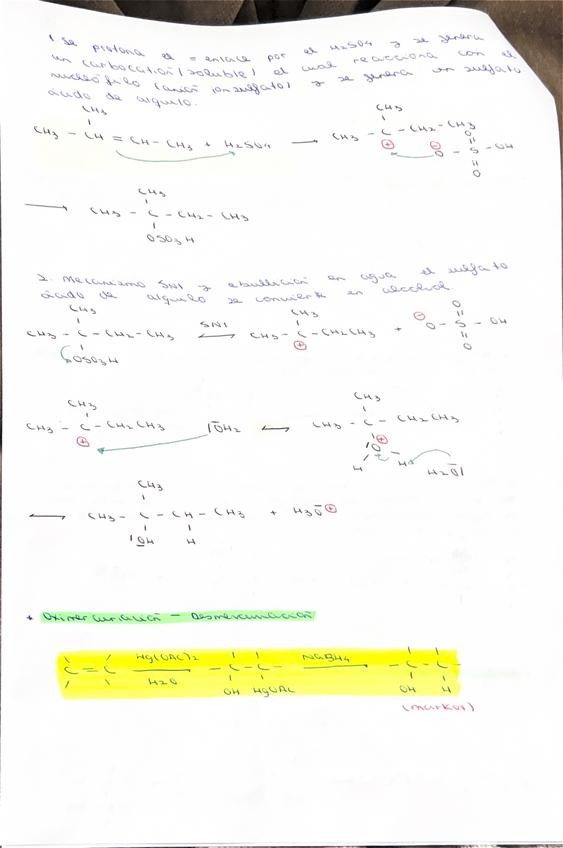 1. Se protona el = enlace por el H2SO4 y se genera
un carbocatión (soluble) el cual reacciona con el
nucleófilo (anión ion sulfato) y se genera un sulfato
ácido de alquilo.
CH3
CH3 - CH = CH - CH3 + H2SO4 →
CH3
CH3 - C - CH2 - CH3
⊕ ⊖ O - S - OH
O
O
→ CH3 - C - CH2 - CH3
CH3
OSO3H
2. Mecanismo SN1 y ebullición en agua el sulfato
ácido de alquilo se convierte en alcohol
CH3
CH3 - C - CH2 - CH3
OSO3H
SN1
CH3
CH3 - C - CH2CH3 +
⊕
⊖ O - S - OH
O
O
CH3
CH3 - C - CH2CH3
⊕
OH2
CH3
CH3 - C - CH2CH3
O ⊕
H H
H2O
CH3
CH3 - C - CH - CH3 + H3O ⊕
OH H
* Oximercuriación - Desmercuriación
C = C Hg(OAC)2 - C - C - NaBH4 - C - C -
H2O
OH HgOAC OH H
(markov)